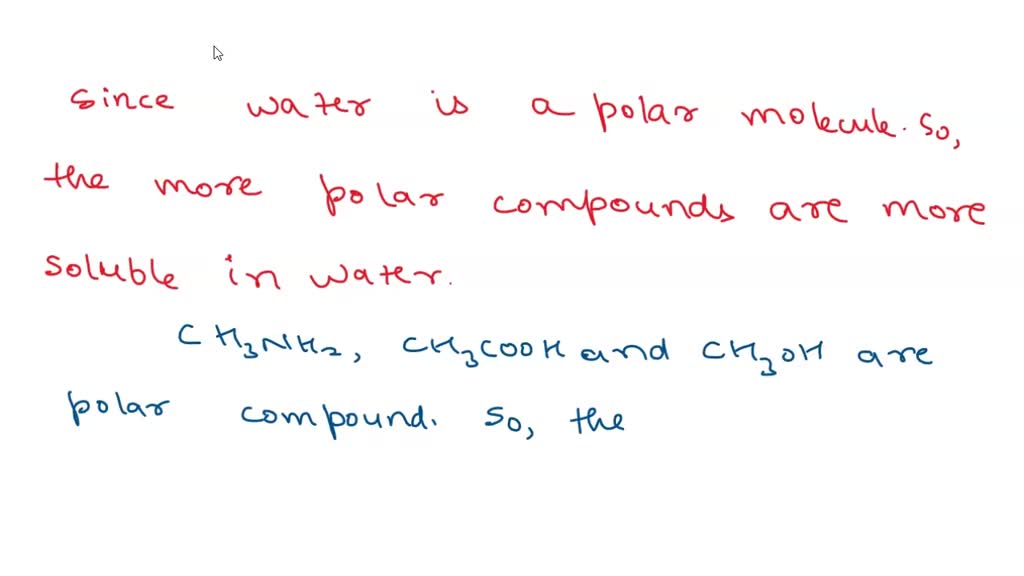 since water is a polar molecule. So,
the more polar compounds are more
soluble in water.
CH₃NH₂, CH₃COOH and CH₃OH are
polar compound. So, the